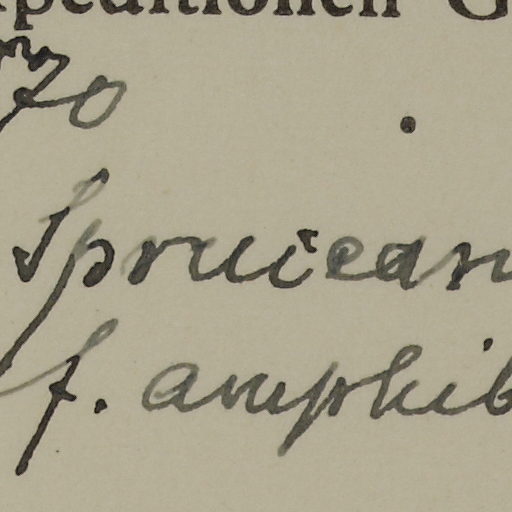 xpeditionen G
70
Sprucean
f. amphib